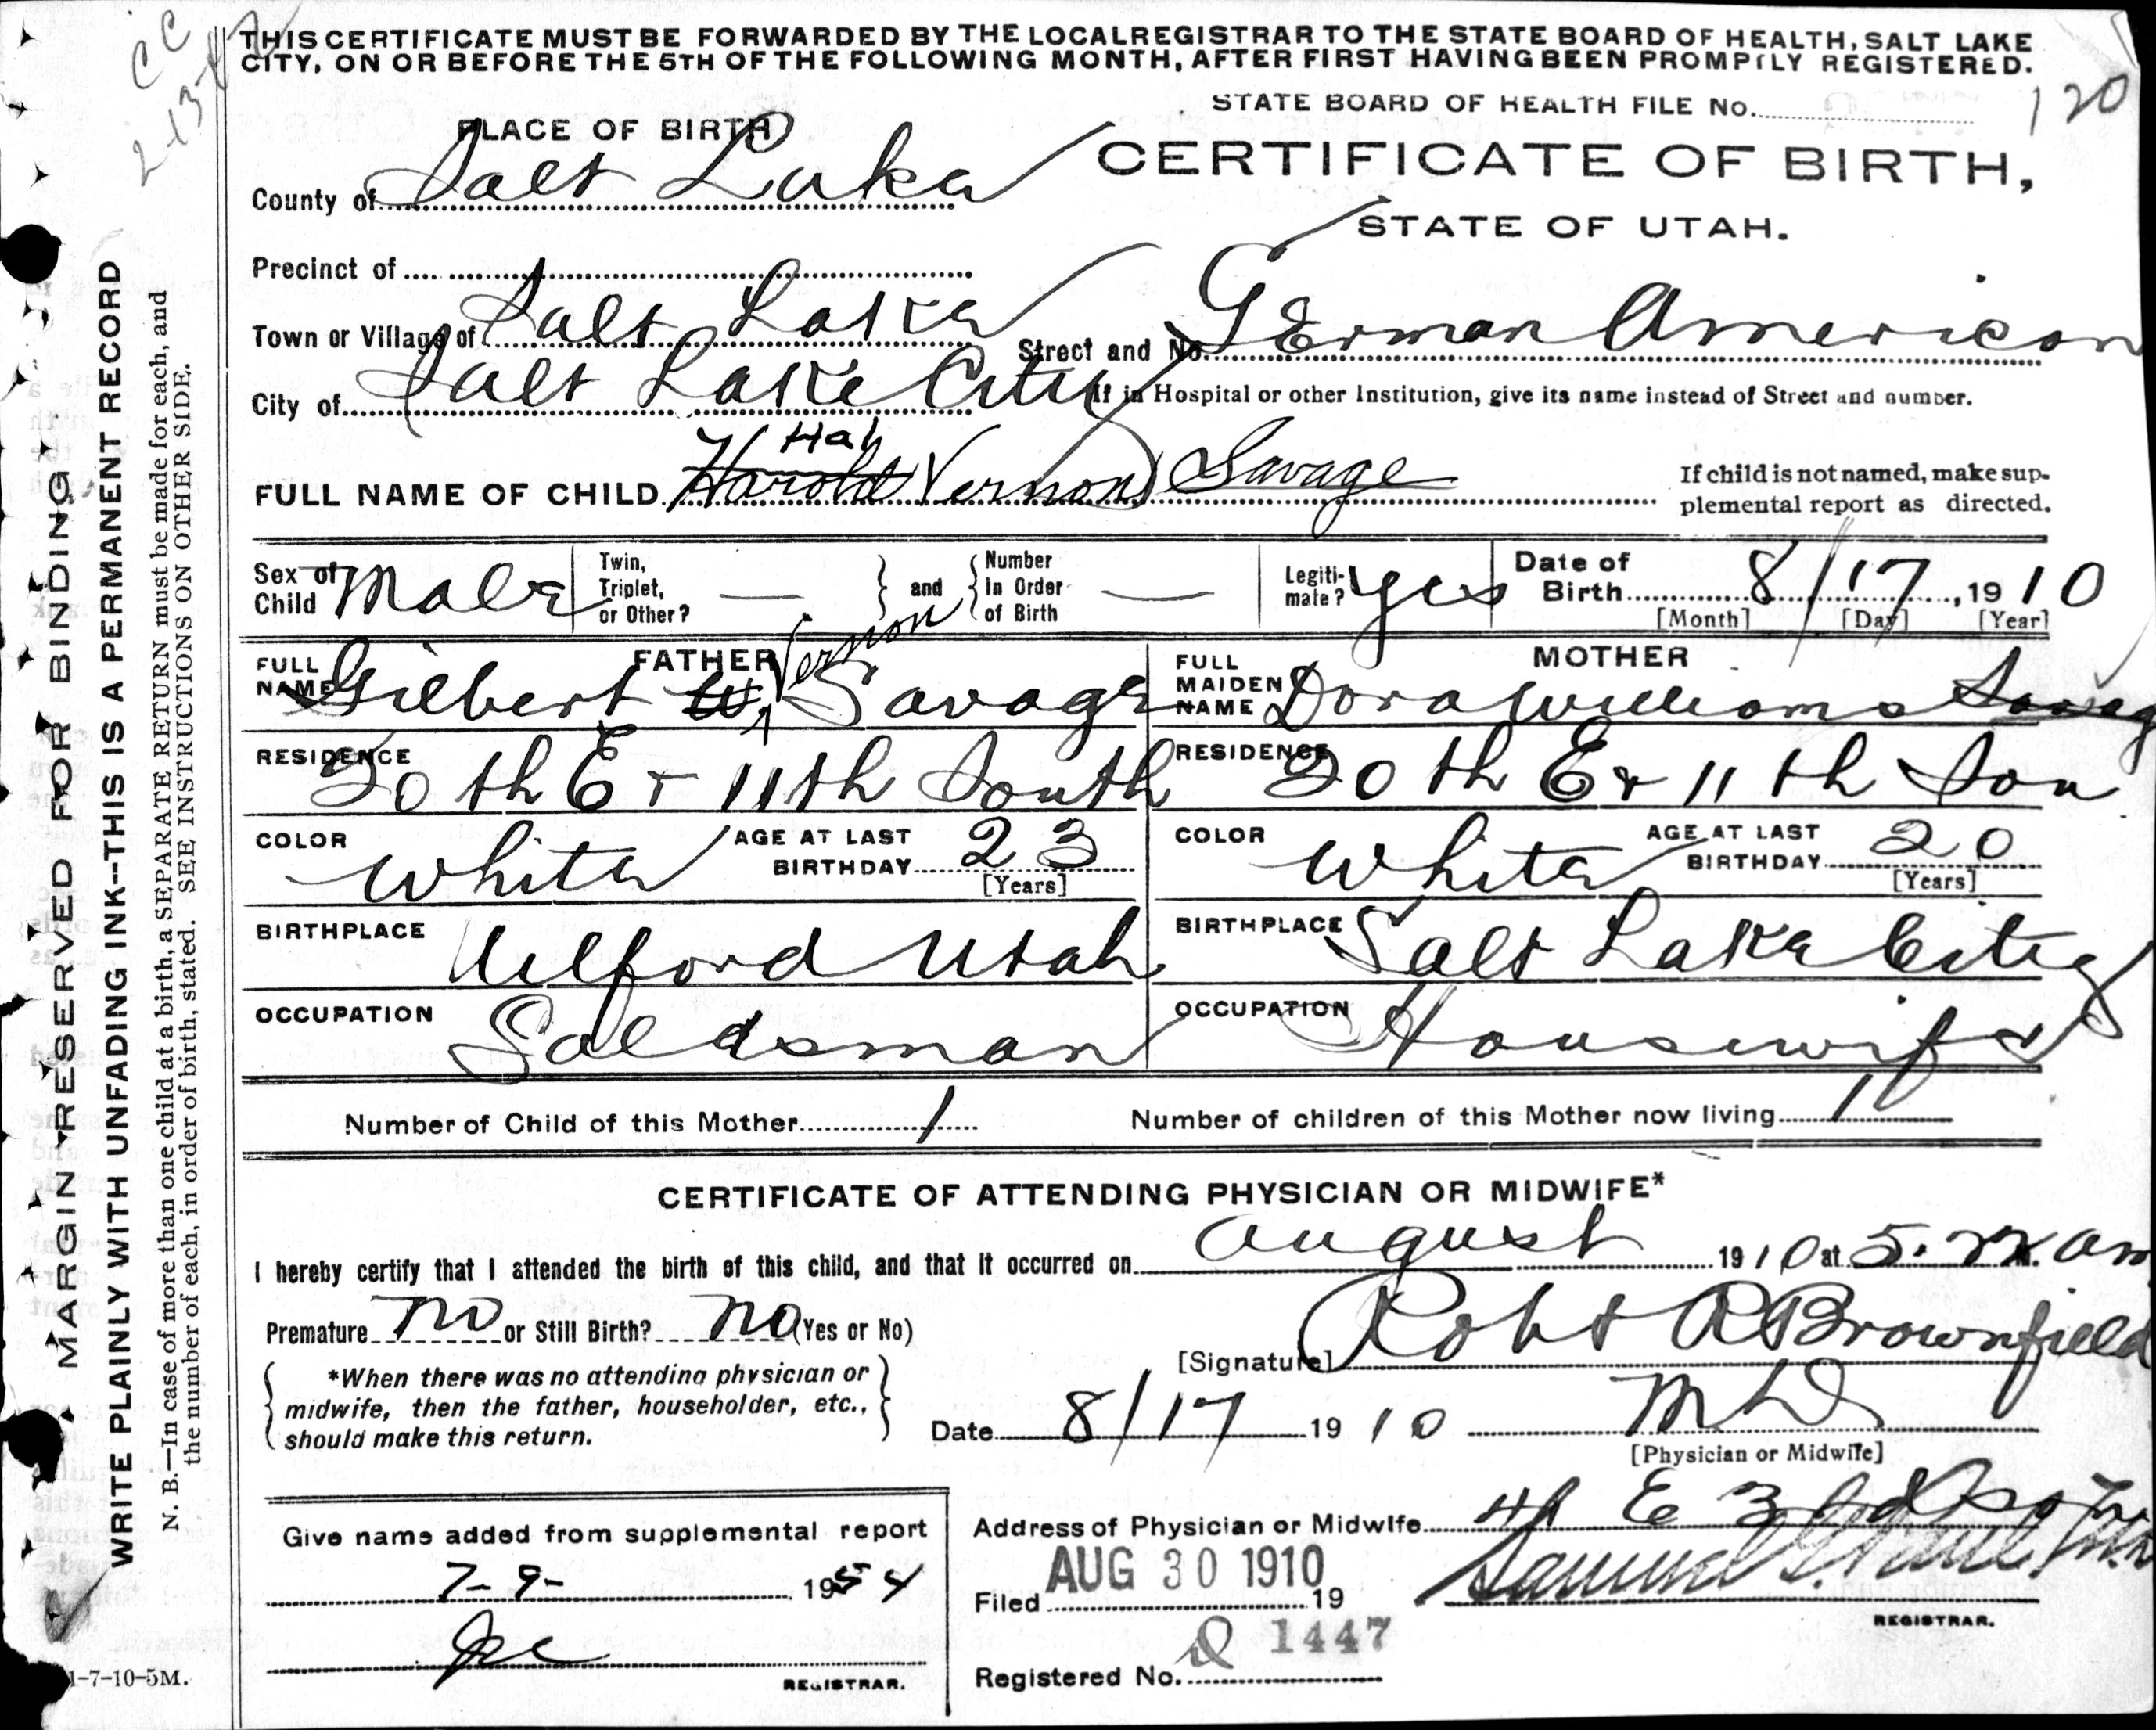 THIS CERTIFICATE MUST BE FORWARDED BY THE LOCAL REGISTRAR TO THE STATE BOARD OF HEALTH, SALT LAKE
CITY, ON OR BEFORE THE 5TH OF THE FOLLOWING MONTH, AFTER FIRST HAVING BEEN PROMPTLY REGISTERED.
CC
2-13-
STATE BOARD OF HEALTH FILE No. 120
PLACE OF BIRTH
CERTIFICATE OF BIRTH,
County of Salt Lake
STATE OF UTAH.
Precinct of
Town or Village of Salt Lake
Street and No. German American
City of Salt Lake City
If in Hospital or other Institution, give its name instead of Street and number.
Hal
FULL NAME OF CHILD Harold Vernon Savage
If child is not named, make sup-
plemental report as directed.
Sex of Child Male
Twin, Triplet, or Other? —
and
Number in Order of Birth —
Legiti-mate? yes
Date of Birth 8/17, 1910
[Month] [Day] [Year]
FATHER
FULL NAME Gilbert W. Vernon Savage
MOTHER
FULL MAIDEN NAME Dora Williams Savag
RESIDENCE 20th E + 11th South
RESIDENCE 20th E + 11th Sou
COLOR White
AGE AT LAST BIRTHDAY 23
[Years]
COLOR White
AGE AT LAST BIRTHDAY 20
[Years]
BIRTHPLACE Milford Utah
BIRTHPLACE Salt Lake City
OCCUPATION Salesman
OCCUPATION Housewife
Number of Child of this Mother 1
Number of children of this Mother now living 1
CERTIFICATE OF ATTENDING PHYSICIAN OR MIDWIFE*
I hereby certify that I attended the birth of this child, and that it occurred on August 1910 at 5. M. am
Premature no or Still Birth? no (Yes or No)
[Signature] Robt R Brownfield
*When there was no attending physician or
midwife, then the father, householder, etc.,
should make this return.
Date 8/17 1910
M D
[Physician or Midwife]
Give name added from supplemental report
7-9- 1954
REGISTRAR.
Address of Physician or Midwife 41 E 3rd So
Filed AUG 30 1910 19
Samuel G. Paul
REGISTRAR.
Registered No. 1447
MARGIN RESERVED FOR BINDING
WRITE PLAINLY WITH UNFADING INK--THIS IS A PERMANENT RECORD
N. B.—In case of more than one child at a birth, a SEPARATE RETURN must be made for each, and
the number of each, in order of birth, stated. SEE INSTRUCTIONS ON OTHER SIDE.
1-7-10-5M.